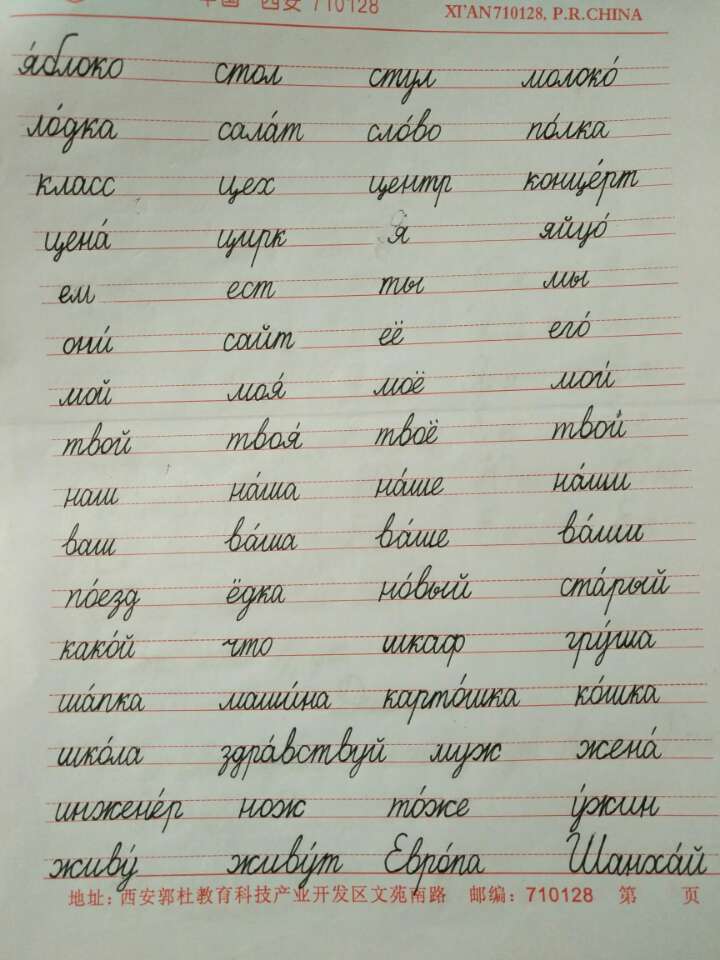 中国 西安 710128
XI'AN 710128, P.R.CHINA
я́блоко стол стул молоко́
ло́дка сала́т сло́во по́лка
класс цех центр конце́рт
цена́ цирк я яйцо́
ем ест ты мы
они́ сайт её его́
мой моя́ моё мои́
твой твоя́ твоё твои́
наш на́ша на́ше на́ши
ваш ва́ша ва́ше ва́ши
по́езд ёдка но́вый ста́рый
како́й что шкаф гру́ша
ша́пка маши́на карто́шка ко́шка
шко́ла здра́вствуй муж жена́
инжене́р нож то́же у́жин
живу́ живу́т Евро́па Шанха́й
地址: 西安郭杜教育科技产业开发区文苑南路 邮编: 710128 第 页